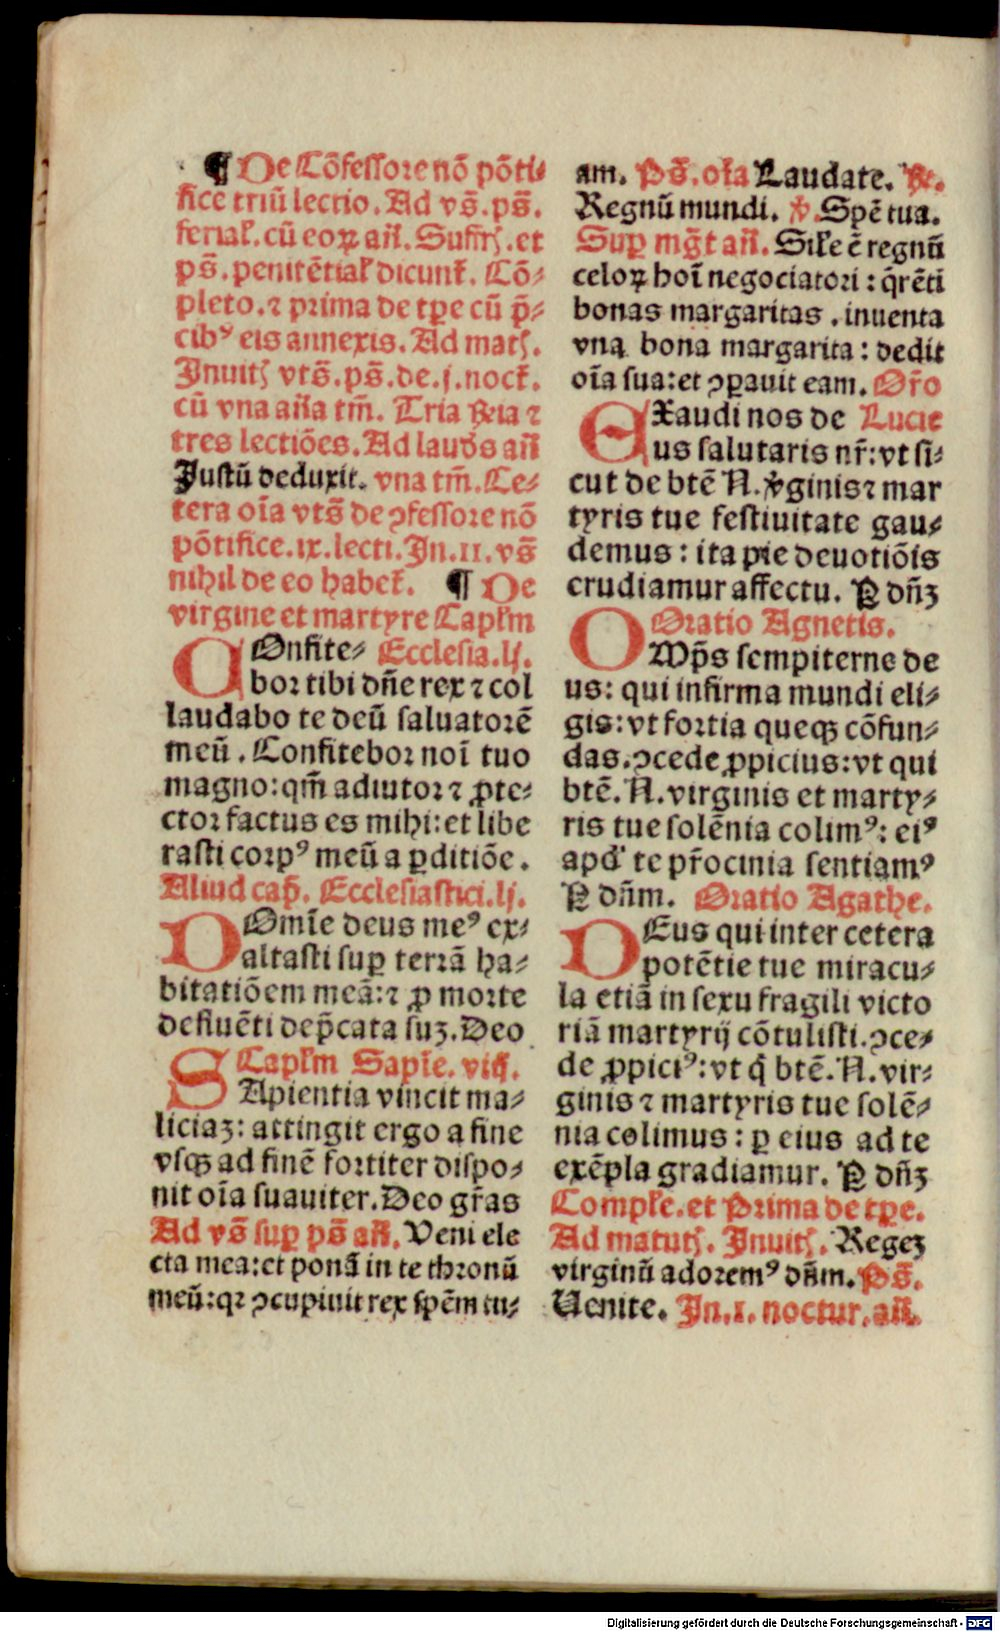 ¶ De Cōfessore nō pōti-
fice triū lectio. Ad vs̄. ps̄.
ferial. cū eoꝝ añ. Suffr. et
ps̄. penitētial dicunt. Cō-
pleto. ⁊ prima de tꝑe cū p̄-
cibꝰ eis annexis. Ad mat.
Inuit vts̄. ps̄. de. j. noct.
cū vna aña tm̄. Tria ꝶia ⁊
tres lectiōes. Ad lauds añ
Justū deduxit. vna tm̄. Ce-
tera oīa vts̄ de ꝯfessore nō
pōtifice. ix. lecti. In. ii. vs̄
nihil de eo habet. ¶ De
virgine et martyre Caplm
COnfite- Ecclesia. lj.
bor tibi dn̄e rex ⁊ col
laudabo te deū saluatorē
meū. Confitebor noī tuo
magno: qm̄ adiutor ⁊ ꝓte-
ctor factus es mihi: et libe
rasti corpꝰ meū a ꝑditiōe.
Aliud cap̄. Ecclesiastici. lj.
DOmīe deus meꝰ ex-
altasti suꝑ terrā ha-
bitatiōem meā: ⁊ ꝓ morte
defluēti dep̄cata suꝫ. Deo
Caplm Sapīe. vij.
SApientia vincit ma-
liciaꝫ: attingit ergo a fine
vsqꝫ ad finē fortiter dispo-
nit oīa suauiter. Deo gr̄as
Ad vs̄ suꝑ ps̄ añ. Veni ele
cta mea: et ponā in te thronū
meū: qꝛ ꝯcupiuit rex spēm tu-
am. Ps̄. oīa Laudate. ꝶ.
Regnū mundi. ℣. Spē tua.
Suꝑ mḡt añ. Sile ē regnū
celoꝝ hoī negociatori: q̄rēti
bonas margaritas. inuenta
vna bona margarita: dedit
oīa sua: et ꝯꝑauit eam. Or̄o
EXaudi nos de Lucie
us salutaris nr̄: vt si-
cut de btē N. v̓ginis ⁊ mar
tyris tue festiuitate gau-
demus: ita pie deuotiōis
erudiamur affectu. P dn̄ꝫ
Oratio Agnetis.
OMp̄s sempiterne de
us: qui infirma mundi eli-
gis: vt fortia queqꝫ cōfun-
das. ꝯcede ꝓpicius: vt qui
btē. N. virginis et marty-
ris tue solēnia colimꝰ: eiꝰ
apd te pr̄ocinia sentiamꝰ
P dn̄m. Oratio Agathe.
DEus qui inter cetera
potētie tue miracu-
la etiā in sexu fragili victo
riā martyrij cōtulisti. ꝯce-
de ꝓpiciꝰ: vt q̄ btē. N. vir-
ginis ⁊ martyris tue solē-
nia colimus: ꝑ eius ad te
exēpla gradiamur. P dn̄ꝫ
Comple. et Prima de tꝑe.
Ad matut. Inuit. Regeꝫ
virginū adoremꝰ dn̄m. Ps̄.
Uenite. In. i. noctur. añ.
Digitalisierung gefördert durch die Deutsche Forschungsgemeinschaft - DFG